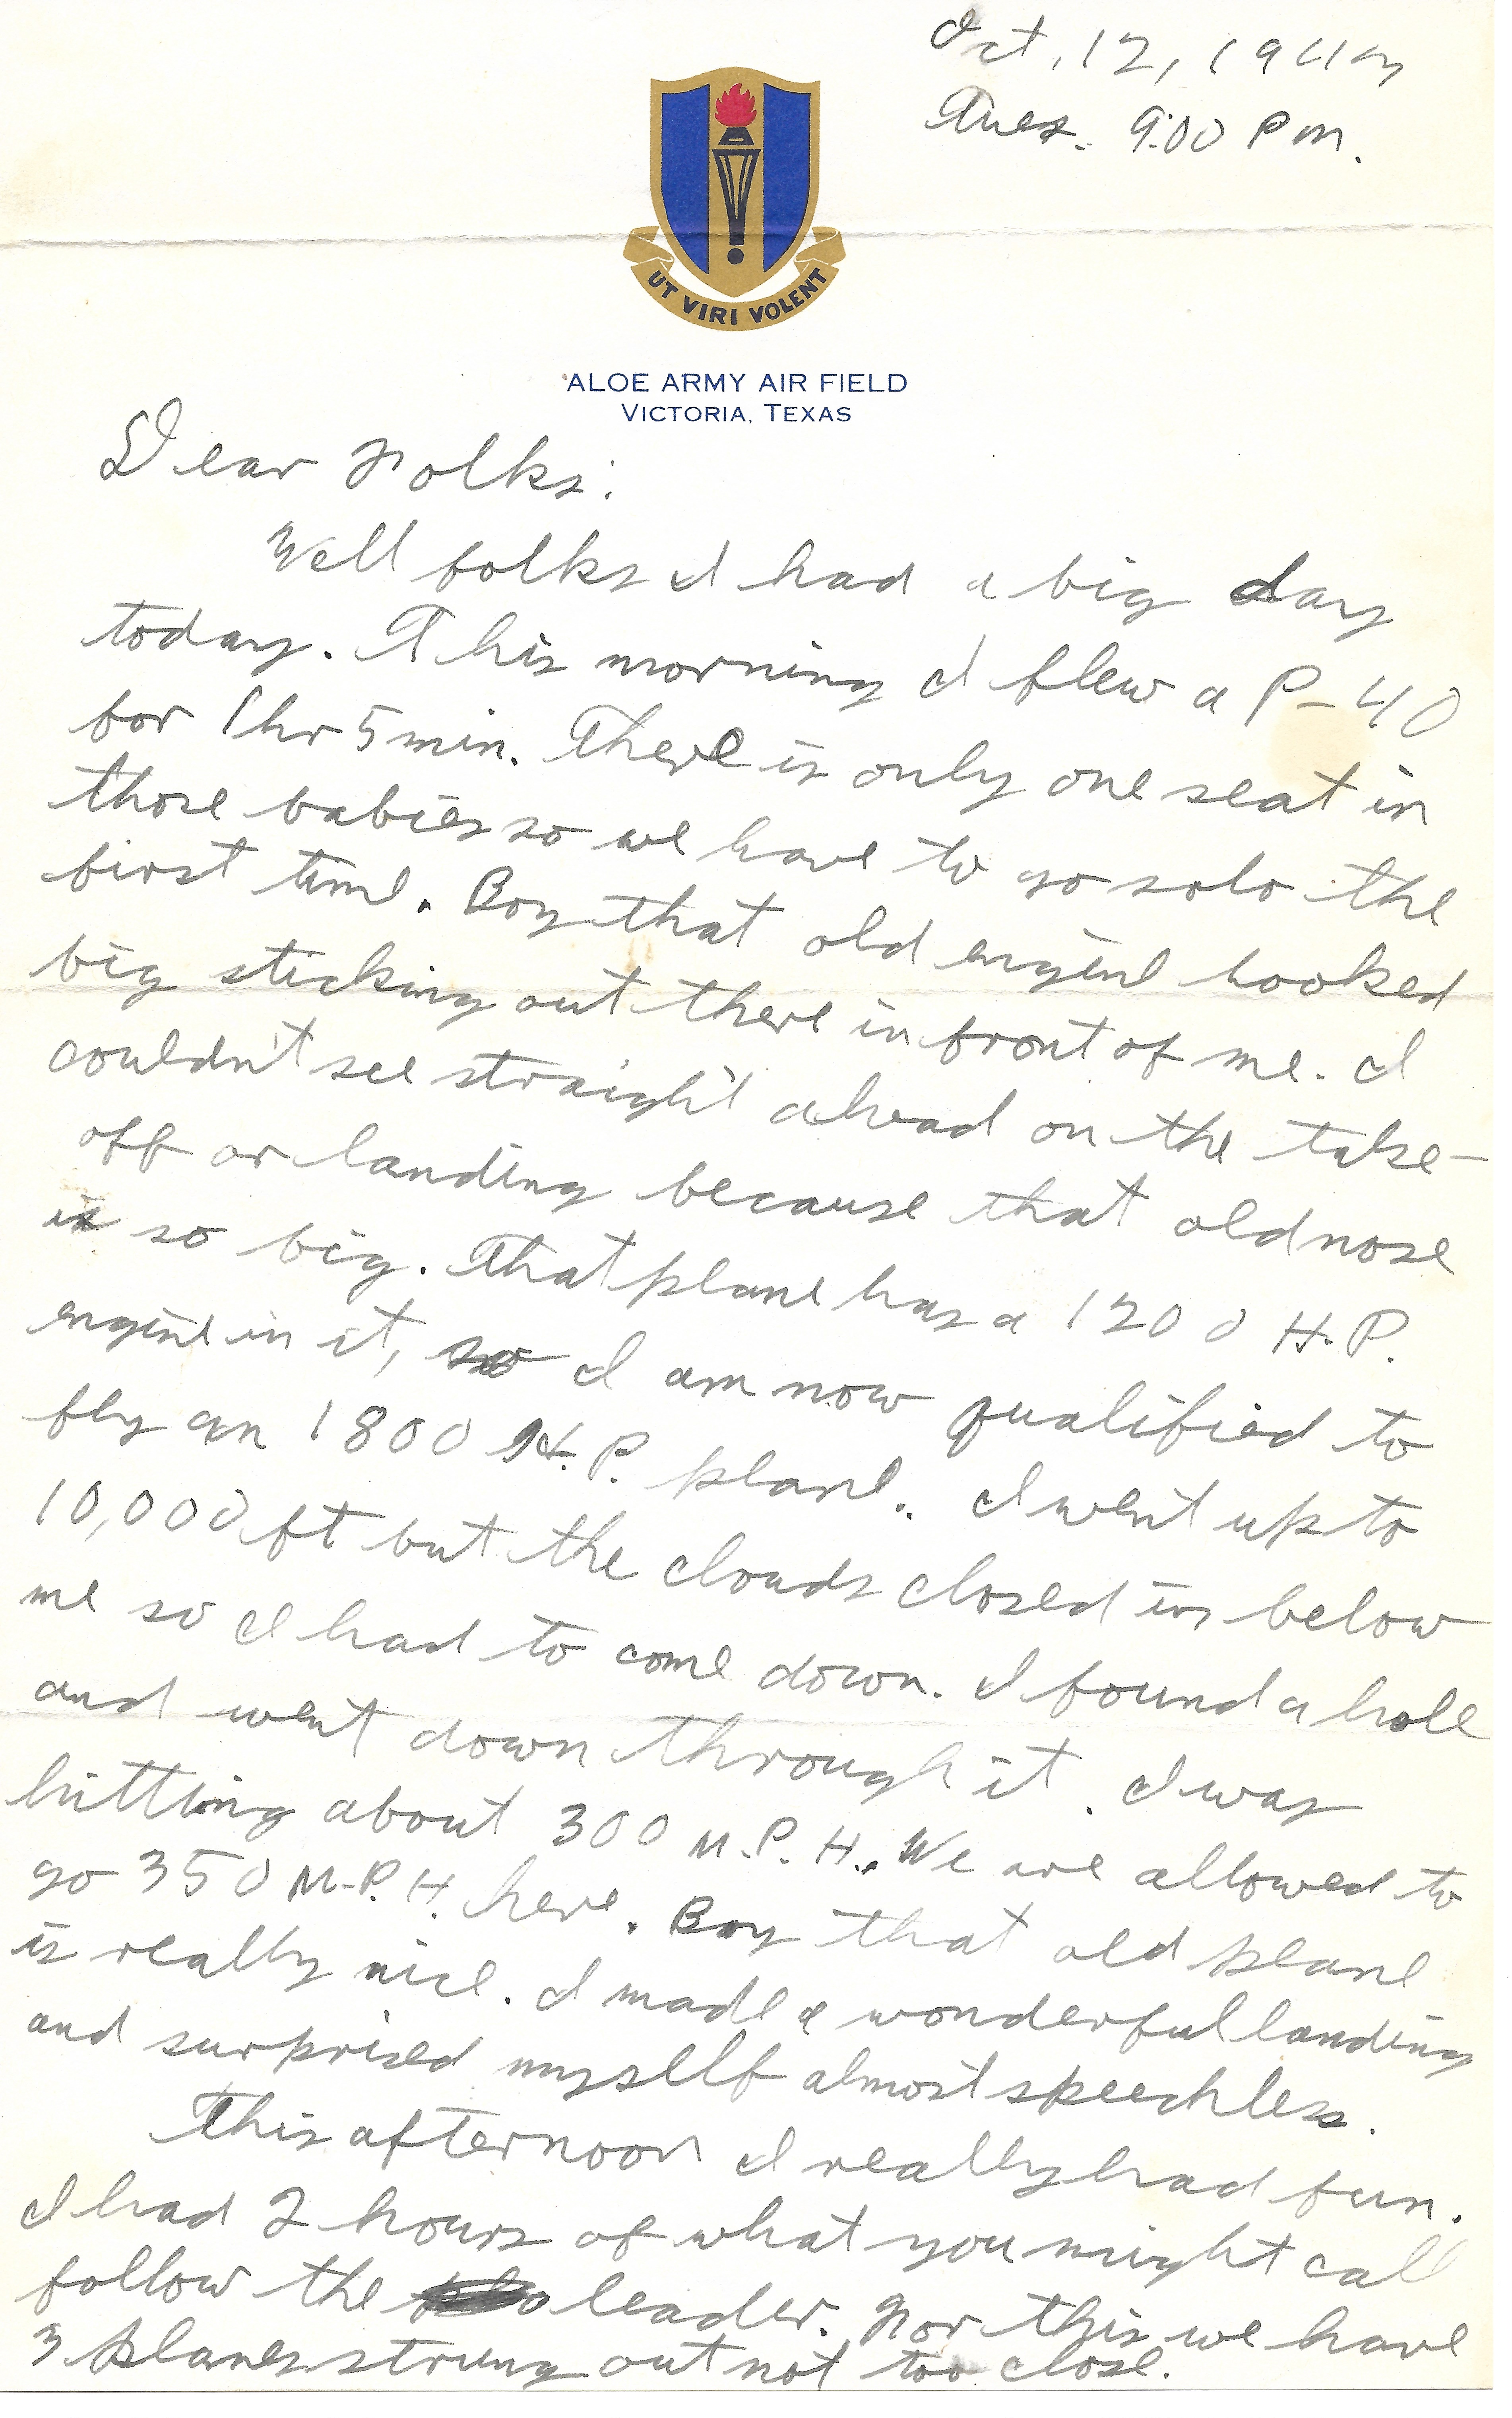 Oct, 12, 1943
Tues. 9:00 P m.
UT VIRI VOLENT
ALOE ARMY AIR FIELD
VICTORIA, TEXAS
Dear Folks:
Well folks I had a big day
today. This morning I flew a P-40
for 1 hr 5 min. There is only one seat in
those babies so we have to go solo the
first time. Boy that old engine looked
big sticking out there in front of me. I
couldn't see straight ahead on the take-
off or landing because that old nose
is so big. That plane has a 1200 H.P.
engine in it, so I am now qualified to
fly an 1800 H.P. plane. I went up to
10,000 ft but the clouds closed in below
me so I had to come down. I found a hole
and went down through it. I was
hitting about 300 M.P.H.. We are allowed to
go 350 M.P.H. here. Boy that old plane
is really nice. I made a wonderful landing
and surprised myself almost speechless.
This afternoon I really had fun.
I had 2 hours of what you might call
follow the leader. For this we have
3 planes strung out not too close.